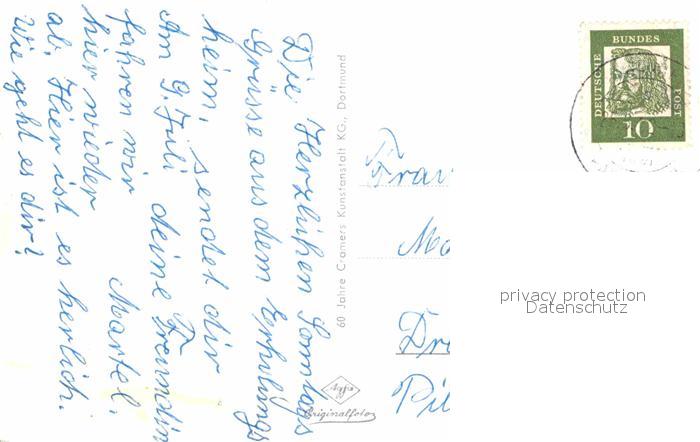 Die Herzlichen Sonntags
Grüsse aus dem Erholungs
heim, sendet dir
deine Freundin
Martel.
Am 9. Juli
fahren wir
hier wieder
ab. Hier ist es herlich.
Wie geht es dir?
60 Jahre Cramers Kunstanstalt KG., Dortmund
Agfa
Originalfoto
Frau
Ma
Dr
Pi
DEUTSCHE
BUNDES
POST
10
privacy protection
Datenschutz